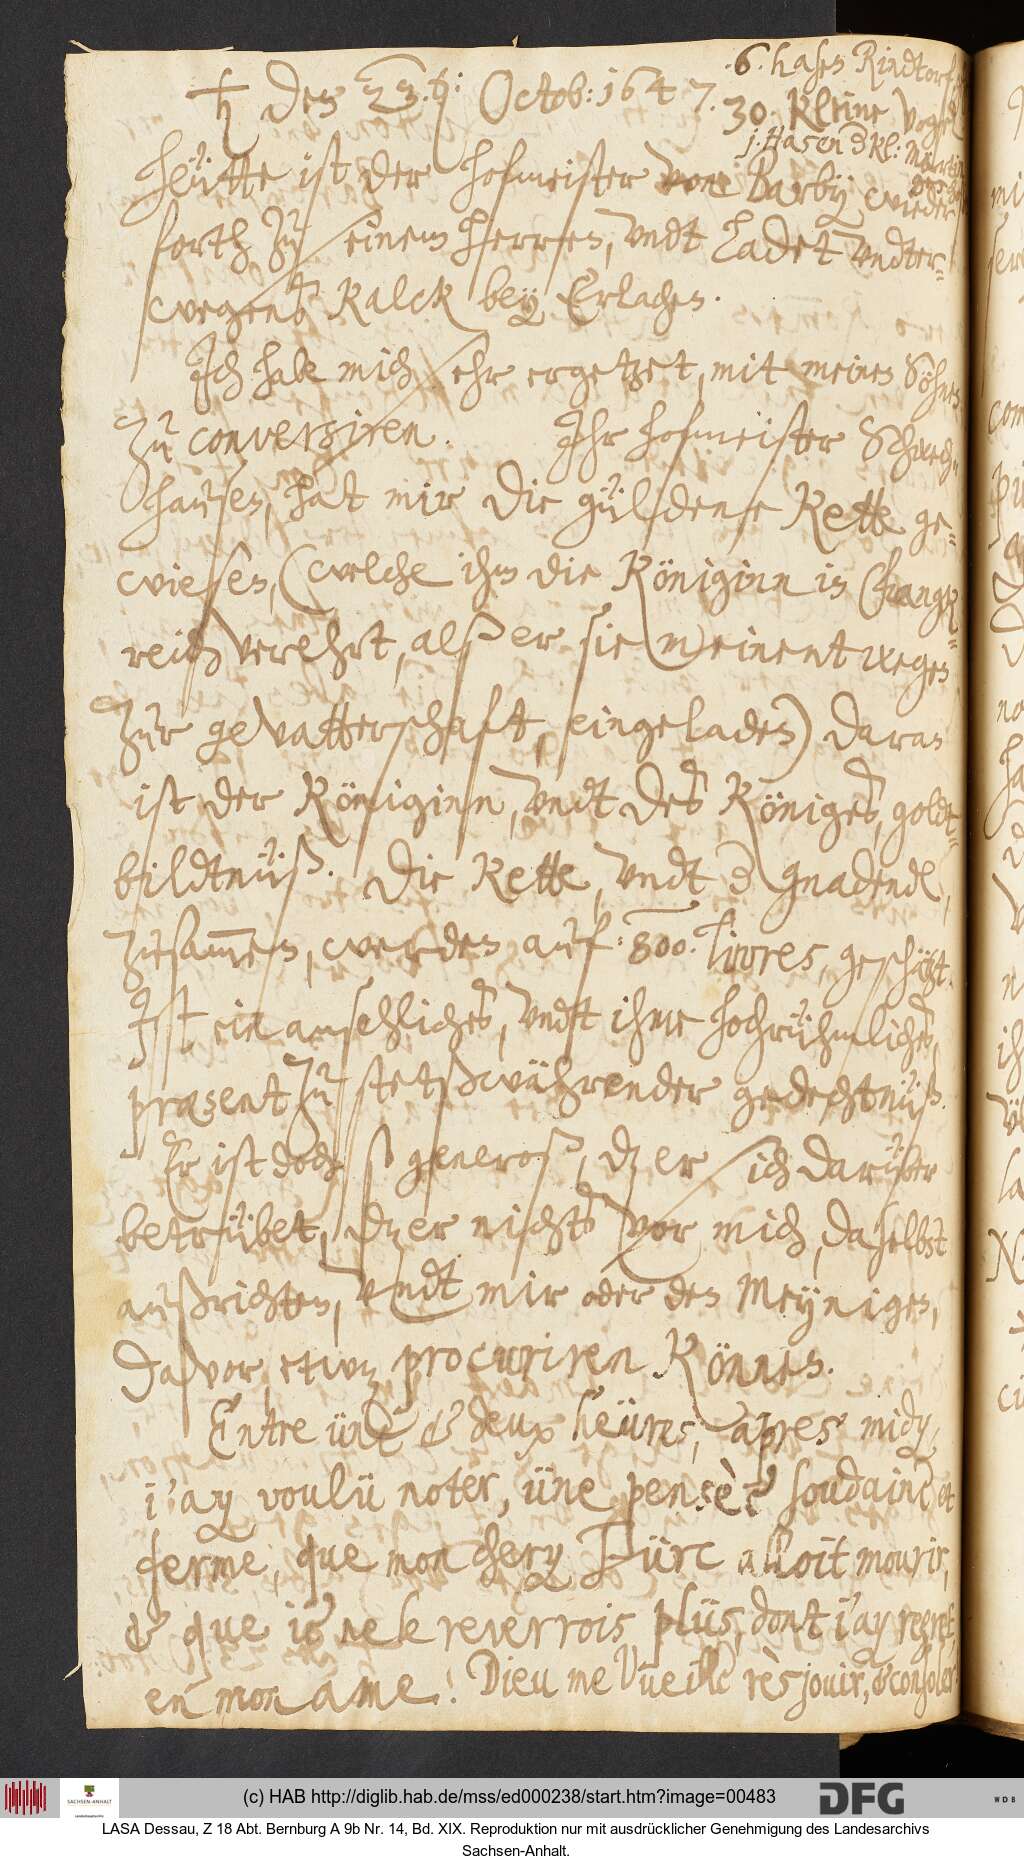 .6. hasen Rindtorf
30 kleine Vogel
1. Hasen d kl:
♄ den 23.ten: Octob: 1647.
Heütte ist der Hofmeister von Barbÿ wieder
forth zu seinem Herren, undt ladet undter-
wegens Kalck bey Erlachen.
Ich habe mich sehr ergetzet, mit meinen Söhnen
zu conversiren. Ihr Hofmeister Schwech-
hausen, hat mir die güldene Kette ge-
wiesen, (welche ihm die Königinn in Franck-
reich verehrt, alß er sie meinentwegen
zur gevatterschaft, eingeladen) daran
ist der Königinn, undt des Königes, goldt-
bildtnüß. Die Kette, undt d gnadend
zusam̅en, werden auf: 800. livres, geschäzt.
Ist ein ansehliches, undt ihme hochrühmliches,
præsent zu stetßwährender gedechtnüß.
Er ist doch so generoß, dz er sich darüber
betrübet, dz er nichts vor mich, daselbst
außrichten, undt mir oder den Meynigen,
davor etwaz procuriren können.
Entre une & deux heüres, apres midy,
i'ay voulü noter, üne pensèe soudaine et
ferme, que mon chery Türc alloit mourir,
& que ie ne le reverrois plüs, dont i'ay regret,
en mon ame! Dieu me vueille rèsjouir, & consoler
(c) HAB http://diglib.hab.de/mss/ed000238/start.htm?image=00483
DFG
WDB
SACHSEN-ANHALT
LASA Dessau, Z 18 Abt. Bernburg A 9b Nr. 14, Bd. XIX. Reproduktion nur mit ausdrücklicher Genehmigung des Landesarchivs
Sachsen-Anhalt.